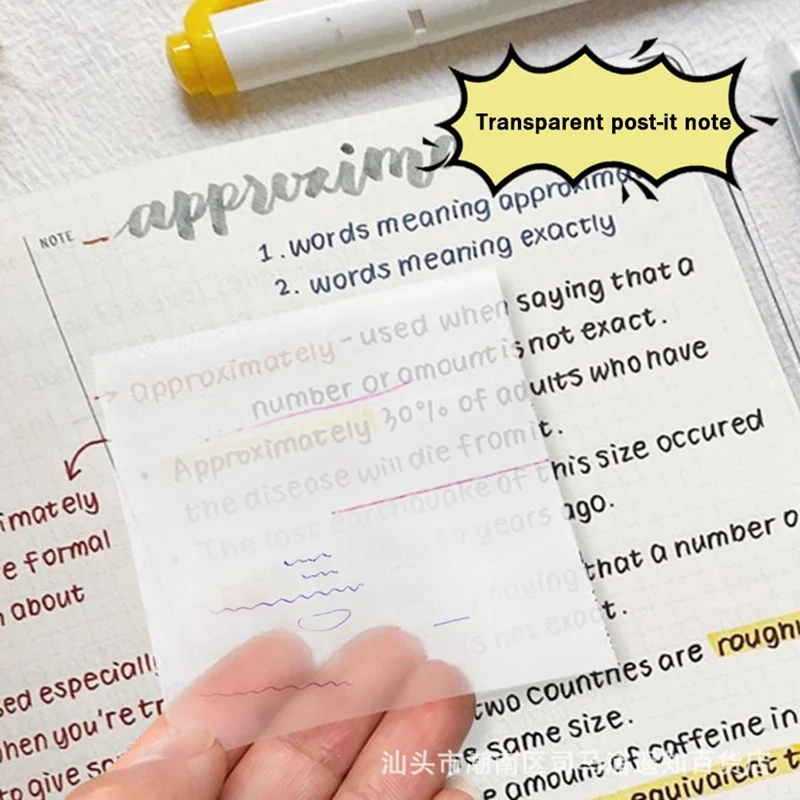 Transparent post-it note
approxim
NOTE
1. words meaning approxima
2. words meaning exactly
→ approximately - used when saying that a
number or amount is not exact.
• Approximately 30% of adults who have
the disease will die from it.
• The last earthquake of this size occured
years ago.
imately
e formal
about
saying that a number o
is not exact.
sed especially
when you're tr
to give so
two countries are roughl
e same size.
e amount of caffeine in
equivalent t
汕头市潮南区司马浦通知百货店